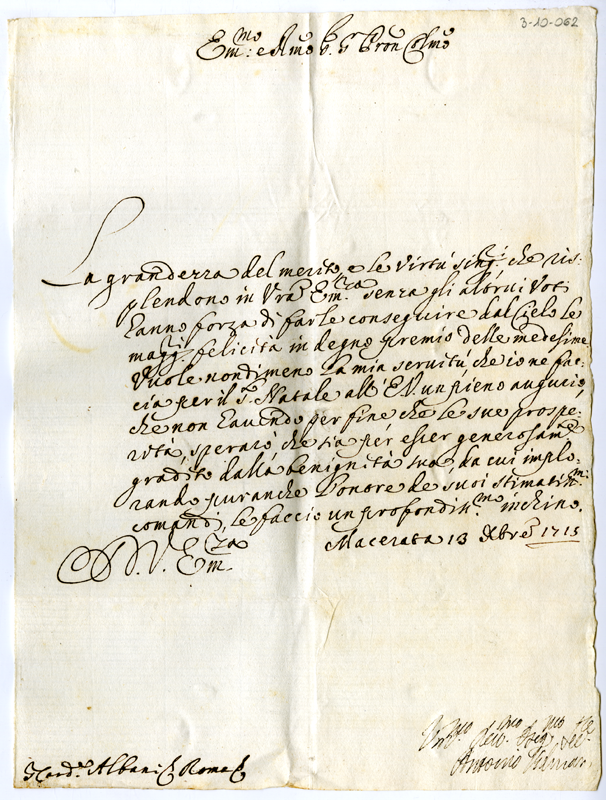 3-10-062
Em:mo e Rmo Sr Pron Colmo
La grandezza del merito, e le Virtù singri che ris-
plendono in Vra Em:za senza gli altrui Voti
hanno forza di farle conseguire dal Cielo le
maggri felicità in degno premio delle medesime
Vuole nondimeno la mia servitù, che io ne fac-
cia per il So Natale all' E.V. un pieno augurio,
che non havendo per fine che le sue prospe-
rità, sperarò che sia per esser generosamte
gradito dalla benignità sua da cui implo-
rando pur anche l'onore de suoi stimatissmi
comandi, le faccio un profondissmo inchino.
Macerata 13 Xbre 1715
D. V. Em:za
Card. Albani Roma
Antonio